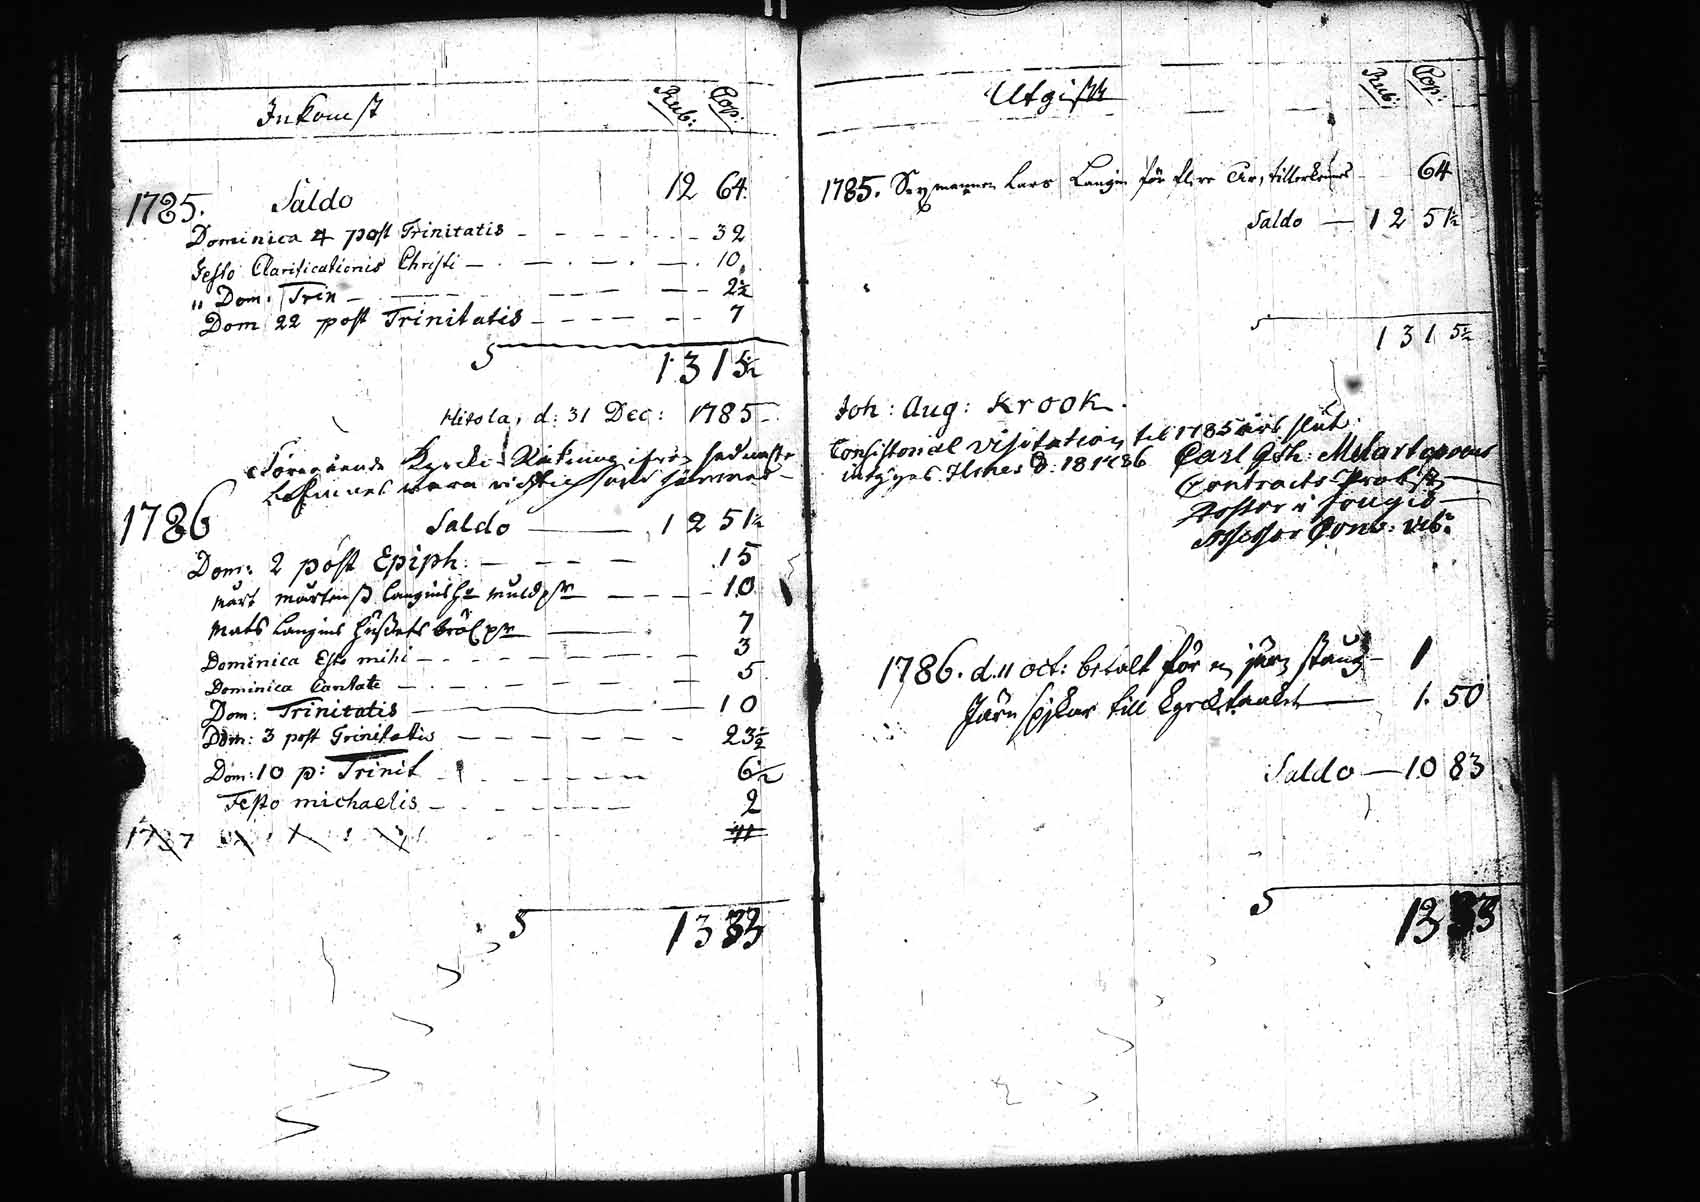 Inkomst Rub: Cop:
1785. Saldo 12 64.
Dominica 4 post Trinitatis - - - - - - 32
Festo Clarificationis Christi - - - - - 10
" Dom: Trin - - - - - 2½
Dom 22 post Trinitatis - - - - - - 7
S 13 15½
Hitola, d: 31 Dec: 1785.
Föregående Kyrcko Räkning ifrån sednaste
befinnes vara richtig
1786 Saldo — 12 51½
Dom: 2 post Epiph. - - - - 15
Mårt Mårtenss Langins - - - 10
Mats Langins 7
Dominica Esto mihi - - - - - - 3
Dominica Cantate - - - - - - 5
Dom: Trinitatis — 10
Dom: 3 post Trinitatis - - - - - - 23½
Dom: 10 p: Trinit - - - - - 6½
Festo Michaelis - - - - - 2
S 13 33
Utgift Rub: Cop:
1785. Lars Langin för flere 64
Saldo — 12 51½
S 13 15½
Joh: Aug: Krook.
Consistorial Visitation til 1785 års slut
intygas Carl Gst: Melartopoeus
Contracts Probst
Pastor i
Assessor Cons: Vib:
1786. d. 11 oct: betalt för en järn stång — 1
Järn spikar till kyrcktaket — 1. 50
Saldo — 10 83
S 13 33